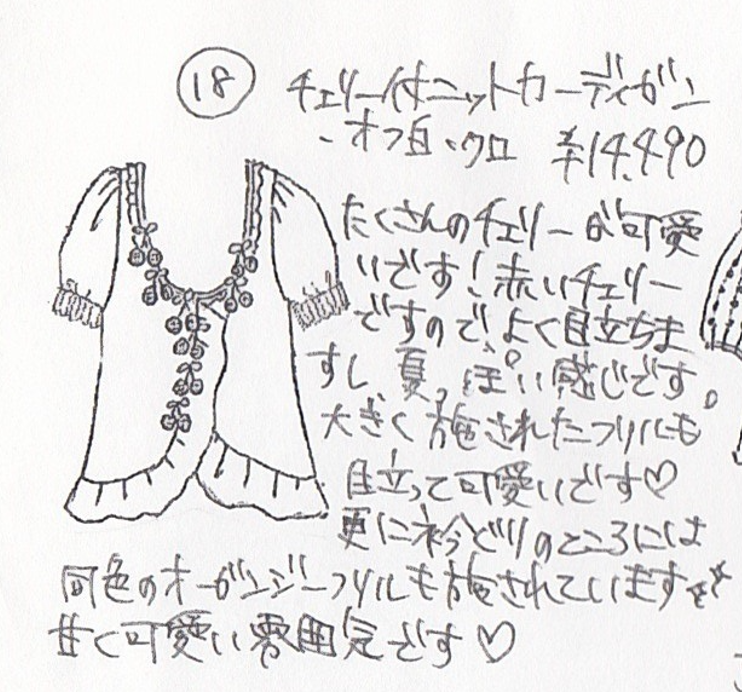 ⑱ チェリー付ニットカーディガン
・オフ白・クロ ¥14,490
たくさんのチェリーが可愛
いです!赤いチェリー
ですので、よく目立ちま
すし、夏っぽい感じです。
大きく施されたフリルも
目立って可愛いです♡
更に衿ぐりのところには
同色のオーガンジーフリルも施されています
甘く可愛い雰囲気です♡